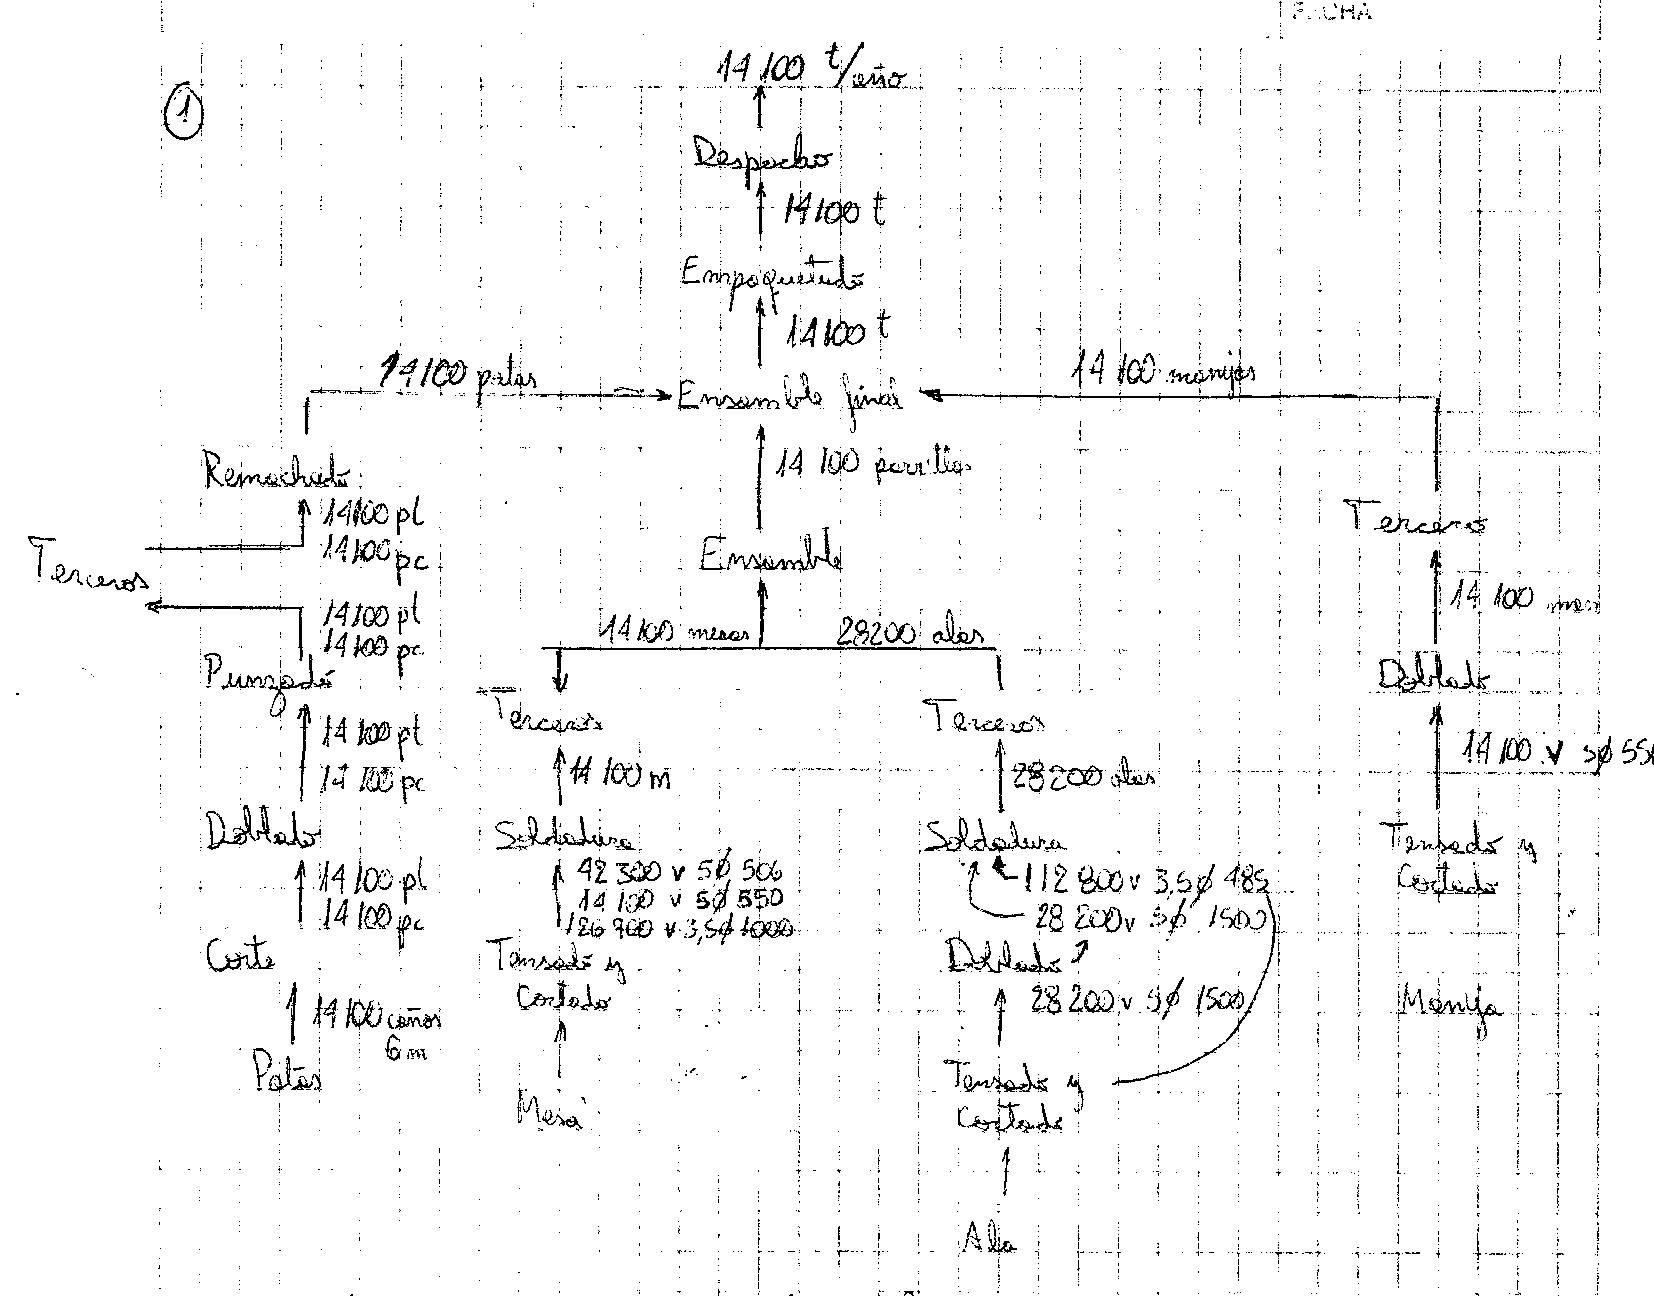 FECHA
1
14 100 t/año
Despacho
14100 t
Empaquetado
14100 t
14100 patas
Ensamble final
14 100 manijas
14 100 parrillas
Remachado
14100 pl
14100 pc
Terceros
14100 pl
14100 pc
Punzado
14 100 pl
14 100 pc
Doblado
14 100 pl
14 100 pc
Corte
14 100 caños
6 m
Patas
Ensamble
14100 mesas
28200 alas
Terceros
14 100 m
Soldadura
42 300 v 5ϕ 506
14 100 v 5ϕ 550
126 900 v 3,5ϕ 1000
Tensado y
Cortado
Mesa
Terceros
28200 alas
Soldadura
112 800 v 3,5ϕ 485
28 200 v 5ϕ 1500
Doblado
28 200 v 5ϕ 1500
Tensado y
Cortado
Ala
Terceros
14 100 man
Doblado
14 100 v 5ϕ 550
Tensado y
Cortado
Manija